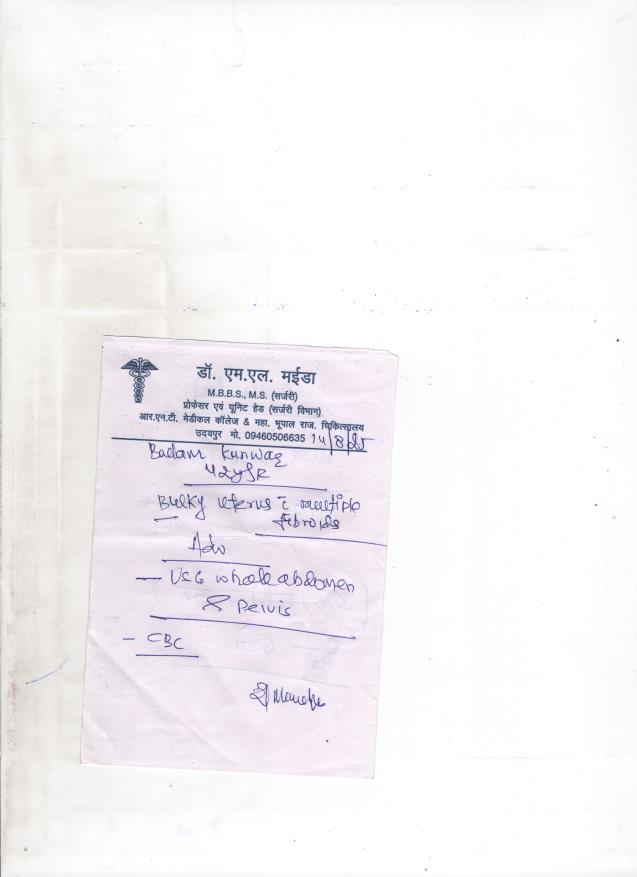 डॉ. एम.एल. मईडा
M.B.B.S., M.S. (सर्जरी)
प्रोफेसर एवं यूनिट हेड (सर्जरी विभाग)
आर.एन.टी. मेडीकल कॉलेज & महा. भूपाल राज. चिकित्सालय
उदयपुर मो. 09460506635 14/8/25
Badam Kunwar
42
Bulky uterus c̄ multiple
fibroids
Adv
- USG whole abdomen
& Pelvis
- CBC